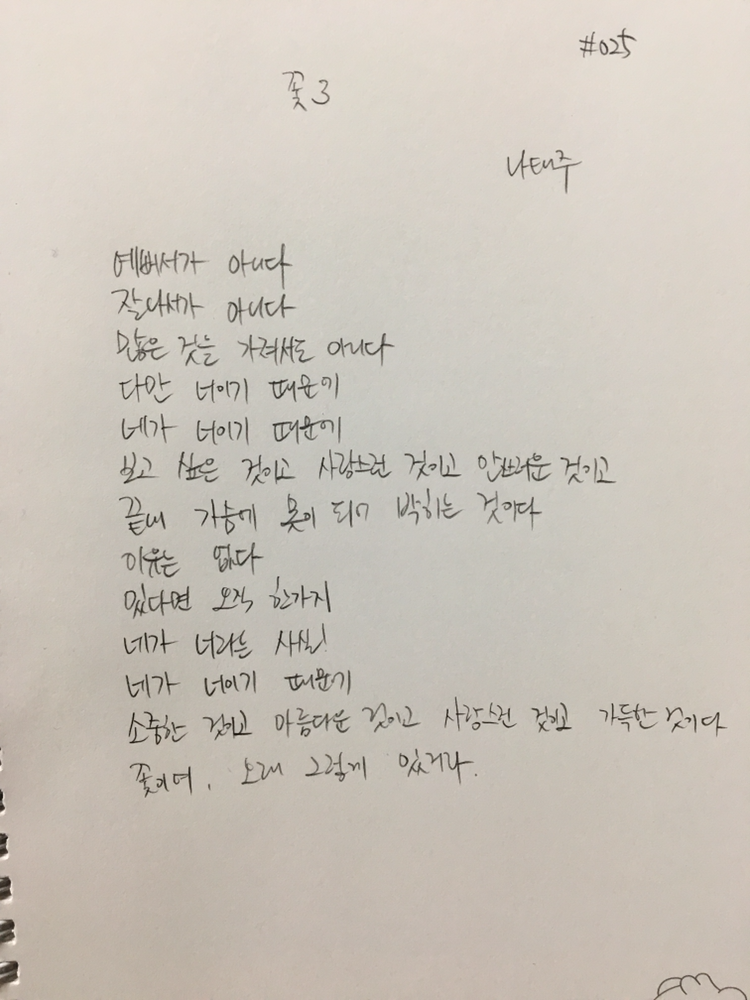 #025
꽃 3
나태주
예뻐서가 아니다
잘나서가 아니다
많은 것을 가져서도 아니다
다만 너이기 때문에
네가 너이기 때문에
보고 싶은 것이고 사랑스런 것이고 안쓰러운 것이고
끝내 가슴에 못이 되어 박히는 것이다
이유는 없다
있다면 오직 한가지
네가 너라는 사실!
네가 너이기 때문에
소중한 것이고 아름다운 것이고 사랑스런 것이고 가득한 것이다
꽃이여, 오래 그렇게 있거라.